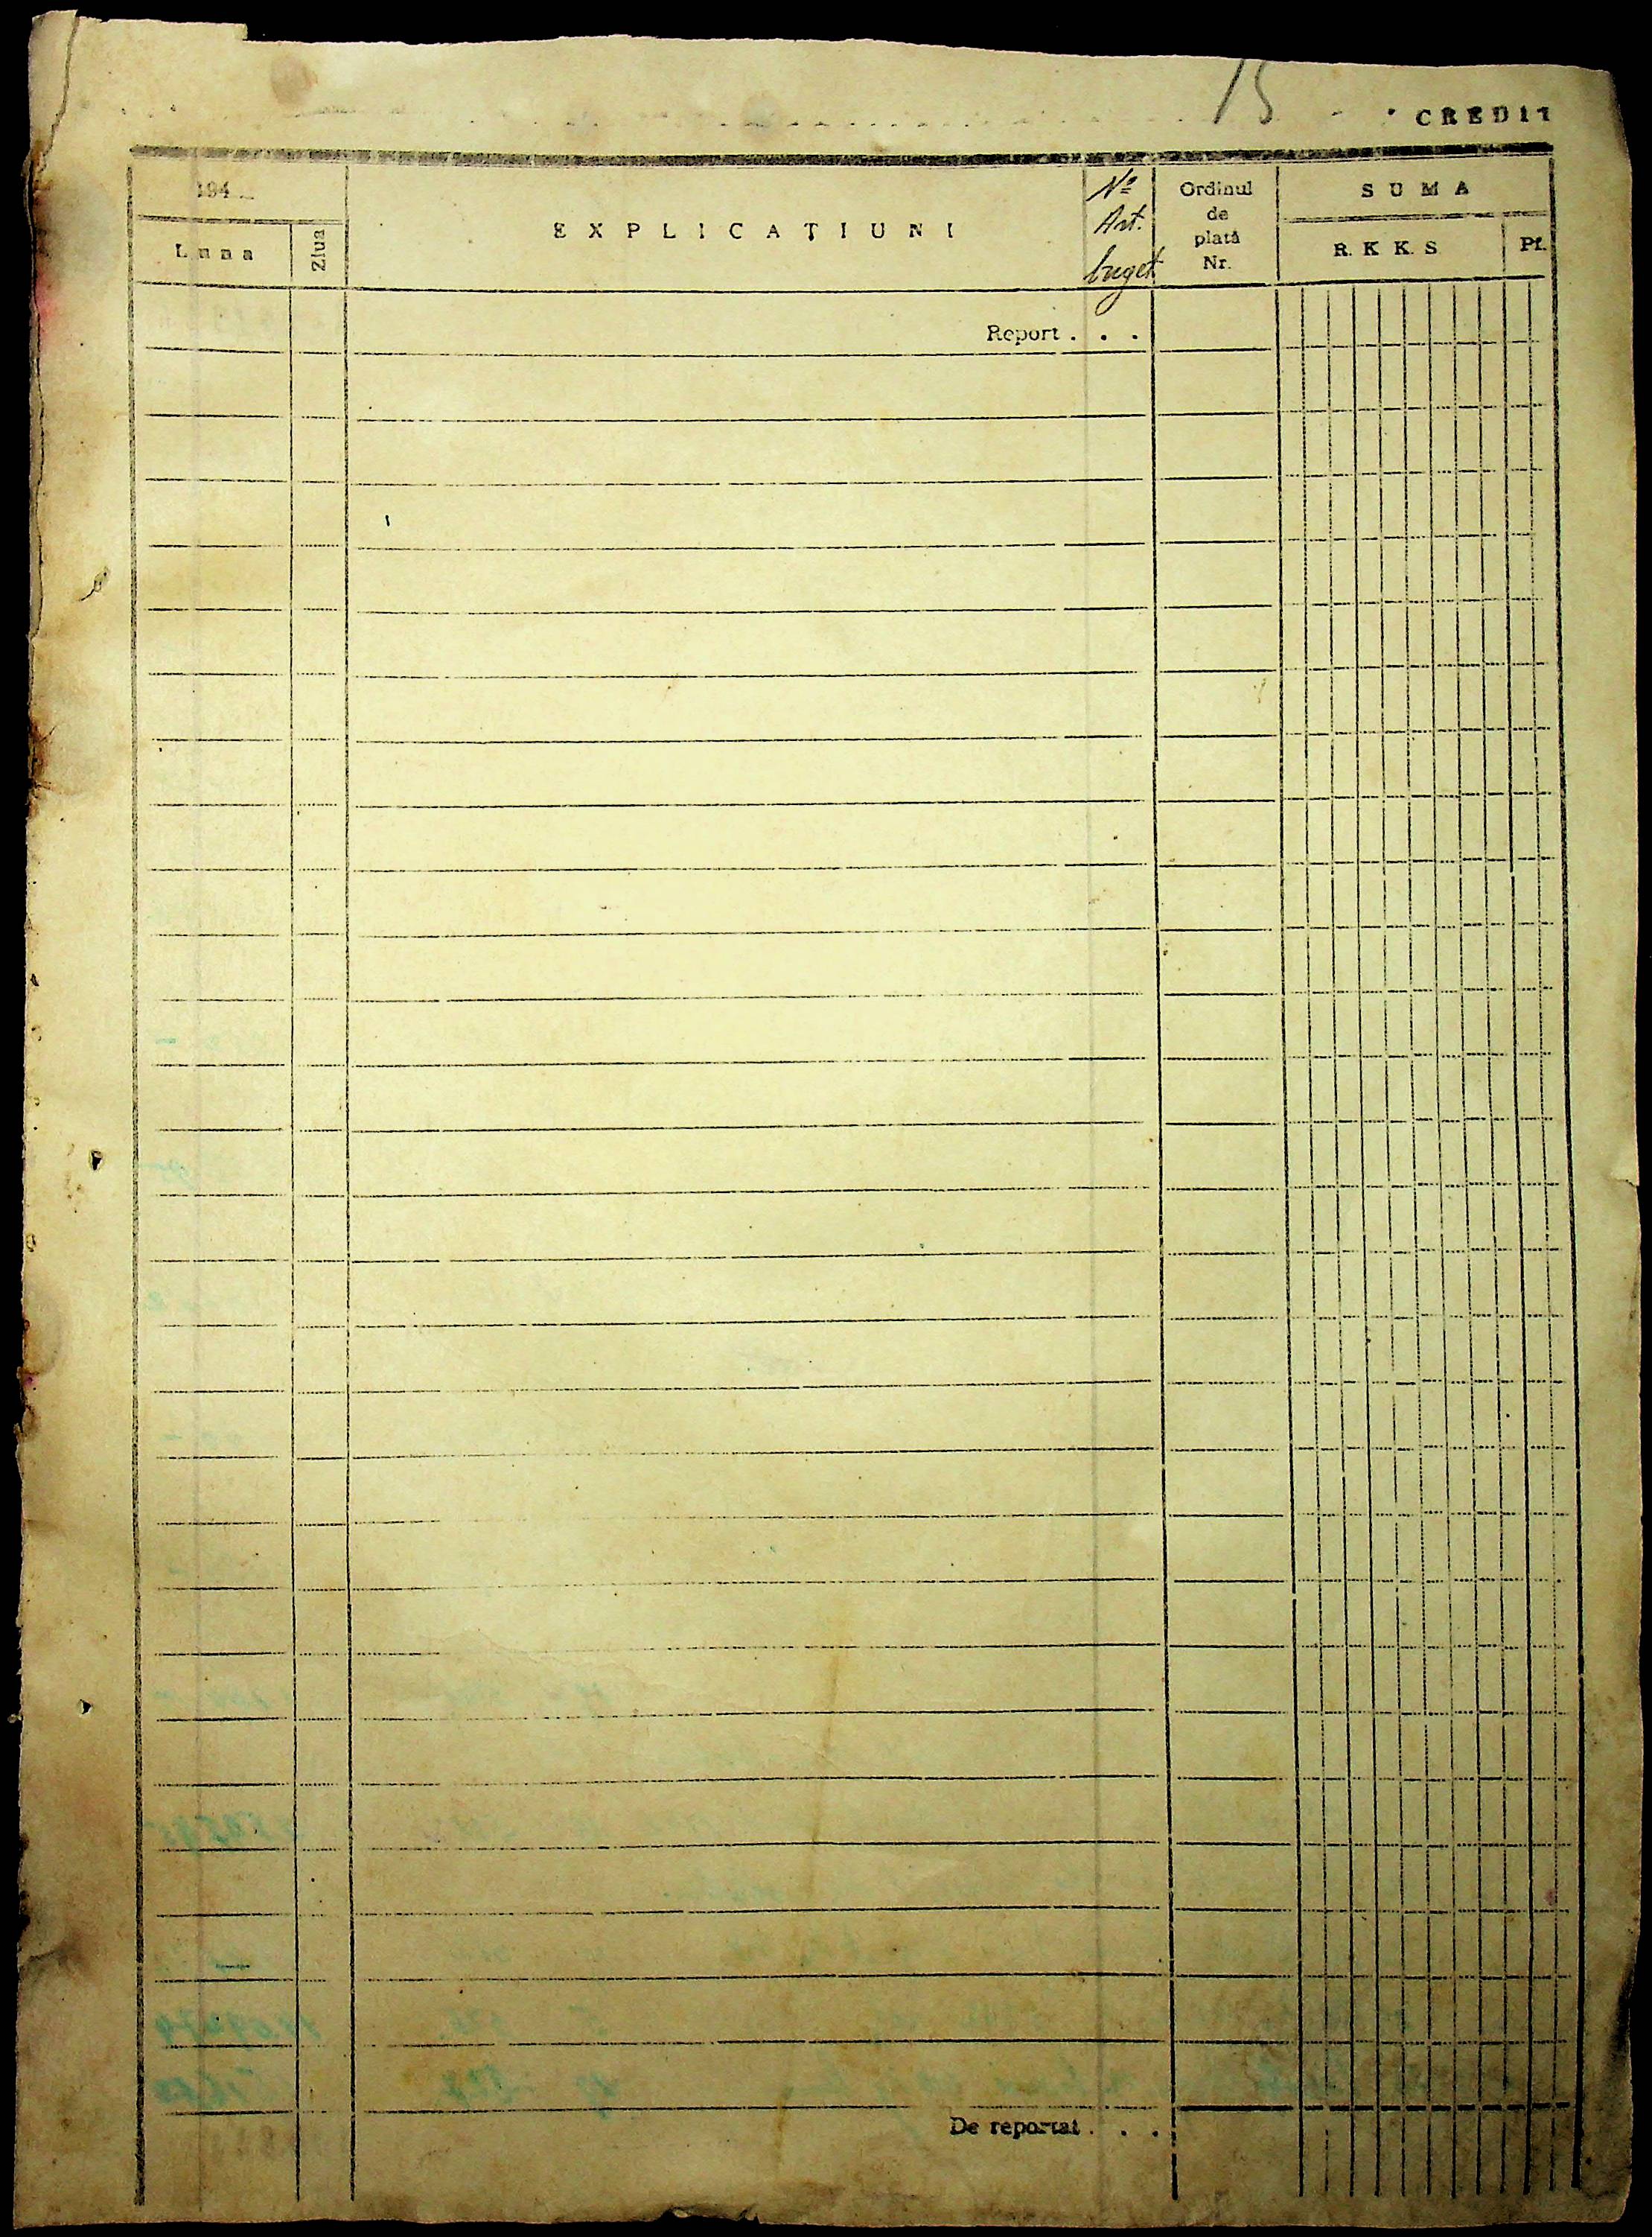 15
CREDIT
194
Luna
Ziua
EXPLICAȚIUNI
No
Art.
buget
Ordinul
de
plată
Nr.
SUMA
R. K K. S
Pf.
Report . . .
De reportat . . .